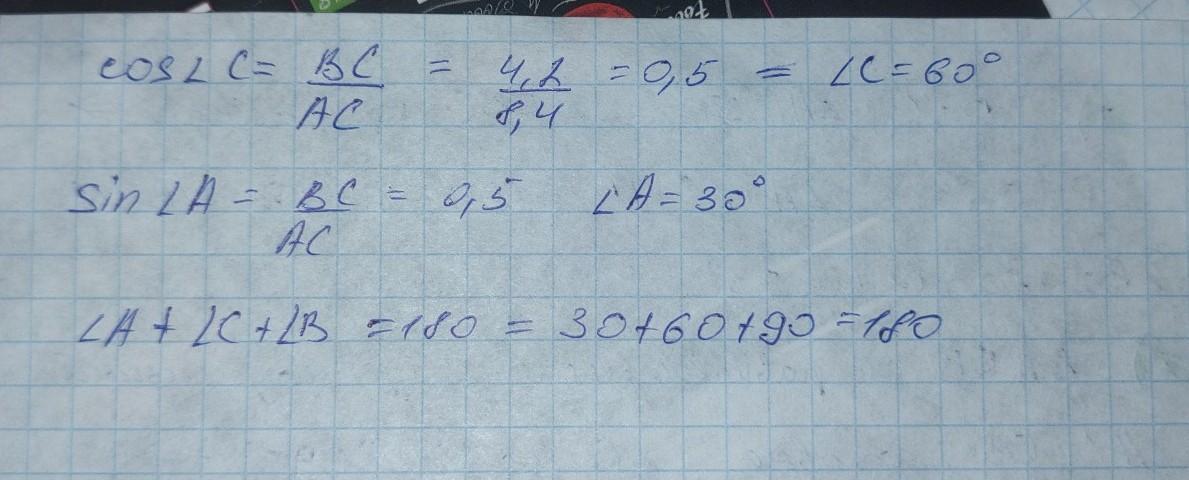 cos∠C = BC/AC = 4,2/8,4 = 0,5 = ∠C = 60°
sin∠A = BC/AC = 0,5 ∠A = 30°
∠A + ∠C + ∠B = 180 = 30+60+90 = 180